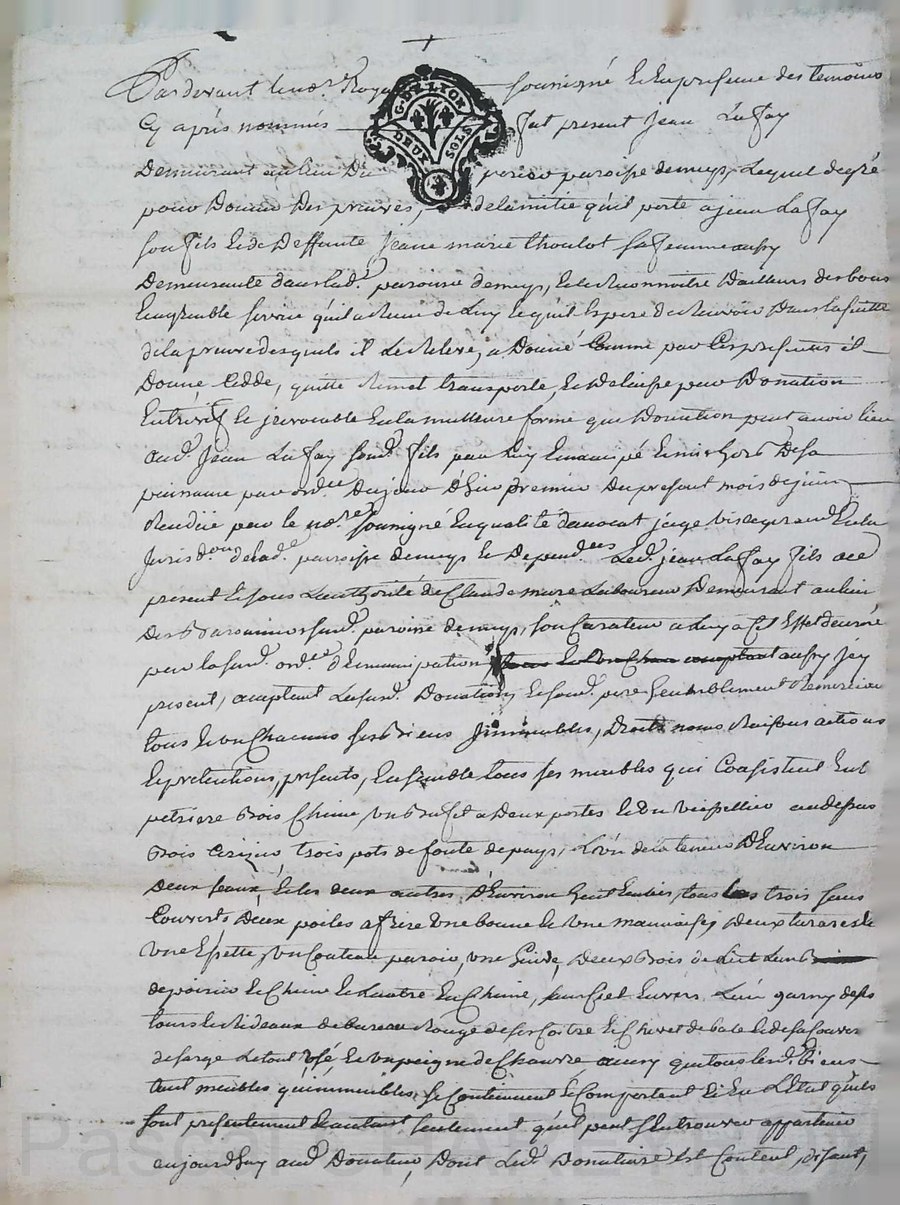 Pardevant le no.re Roya G. DE LYON soussigné et en presence des temoins
Cy apres nommés DEUX SOLS fut present Jean Lafay
Demeurant au lieu Du paroisse demuys, Lequel de gré
pour Donner Des preuves, de lamitié qu'il porte a jean Lafay
son fils et de Deffunte Jeane marie thoulot sa femme aussy
Demeurante dans lad.e paroisse demuys, et le Reconnoitre Dailleurs des bons
Et agreable service qu'il a Receu de Luy Et quil Espere de Recevoir Dans la suitte
de la preuve desquels il Le Releve, a Donné Comme par Ces presentes il
Donne Cedde, quitte Remet transporte, Et Delaisse pour Donation
Entrevifs Et jrevocable En la meilleure forme que Donation peut avoir lieu
aud. Jean Lafay sond. fils par luy Emancipé Et mis hors De sa
puissance par ord.ce Du jour D'hier premier Du present mois de juin
Rendue par le no.re soussigné En qualité davocat juge En la
Jurisd.on de lad.e paroisse demuys Et Depend.ces Led. jean Lafay fils ace
present Et sous Lauthorité de Claude mure Laboureur Demeurant au lieu
Des susd. paroisse demuys, son Curateur a Luy a Cet Effet decerné
par la susd. ord.ce d'Emancipation aussy jcy
present, acceptant Lasusd. Donation, Et sond. pere humblement Remerciant
tous Et un Chacuns ses Biens Jmmeubles, Droits noms Raisons actions
Et pretentions, presents, Ensemble tous ses meubles qui Consistent En
petriere Bois Chene, un Bufet a Deux portes Et un Vaissellier au dessus
Bois Cerizier trois pots de fonte de pays, L'un de la teneur D'Environ
Deux seaux, Et les deux autres D'Environ tous les trois sans
Couverts Deux poiles a frire Une bonne Et Une mauvaise, Deux
Une un Couteau paroir, une Deux Bois de Lict Lun
de poirier Et Chene Et Lautre En Chene, sans Ciel Envers Lun garny de ses
tours Et Rideaux de bureau Rouge Et Chevet de bale Et de sa Couverte
de sarge Le tout Usé Et un peigne de Chanvre ainsy que tous lesd. Biens
tant meubles qu'immeubles, se Contiennent Et Comportent Et En L'Etat qu'ils
sont presentement Et autant seulement qu'il peut s'En trouver appartenir
aujourdhuy aud. Donateur, Dont Led. Donataire Est Content, disant,
Pascal